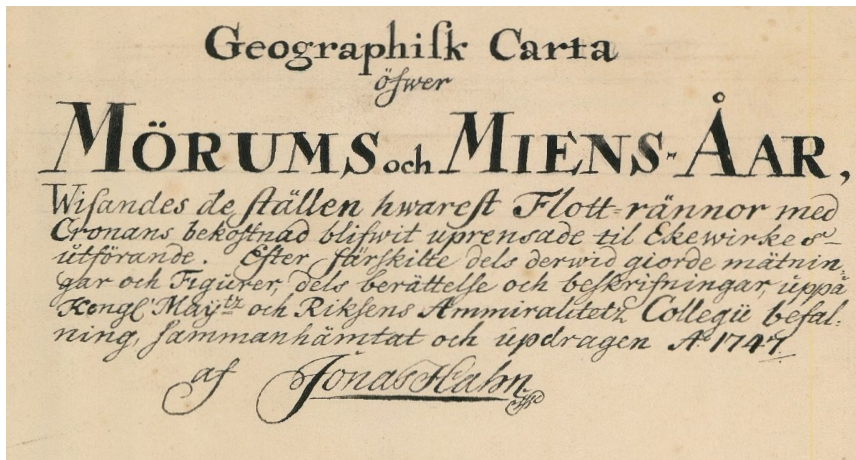 Geographiſk Carta
öfwer
MÖRUMS och MIENS-ÅAR,
Wiſandes de ſtällen hwareſt Flott-rännor med
Cronans bekoſtnad blifwit uprensade til Ekewirkes-
utförande. Efter färſkilte dels derwid giorde mätnin-
gar och Figurer, dels berättelse och beſkrifningar, uppå
Kongl. May:tz och Riksens Ammiralitetz Collegii befal-
ning, ſammanhämtat och updragen A:o 1747.
af Jonas Hahn